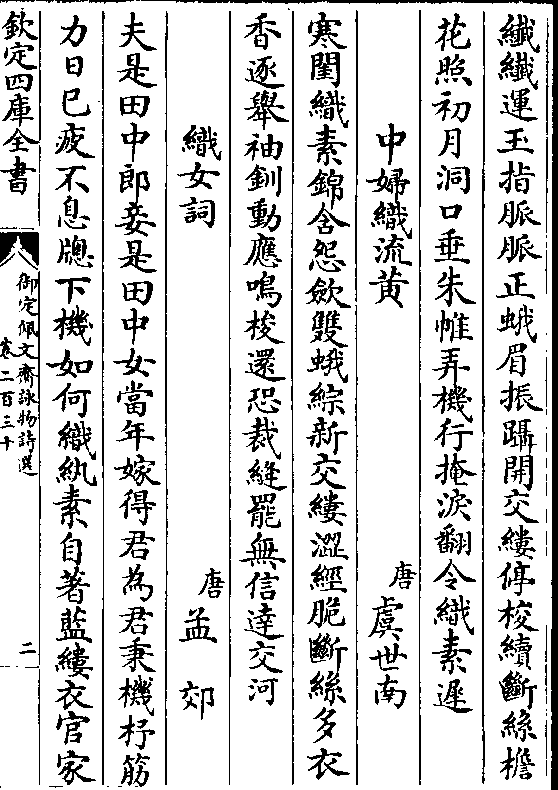 纎纎運玉指脈脈正蛾眉振躡開交縷停梭續斷絲檐
花照初月洞口垂朱帷弄機行掩淚翻令織素遲
中婦織流黄 唐 虞世南
寒閨織素錦含怨斂雙蛾綜新交縷澀經脆斷絲多衣
香逐舉袖釧動應鳴梭還恐裁縫罷無信達交河
織女詞 唐 孟郊
夫是田中郎妾是田中女當年嫁得君為君秉機杼筋
力日已疲不息牕下機如何織紈素自著藍縷衣官家
欽定四庫全書
御定佩文齋詠物詩選
卷二百三十
二